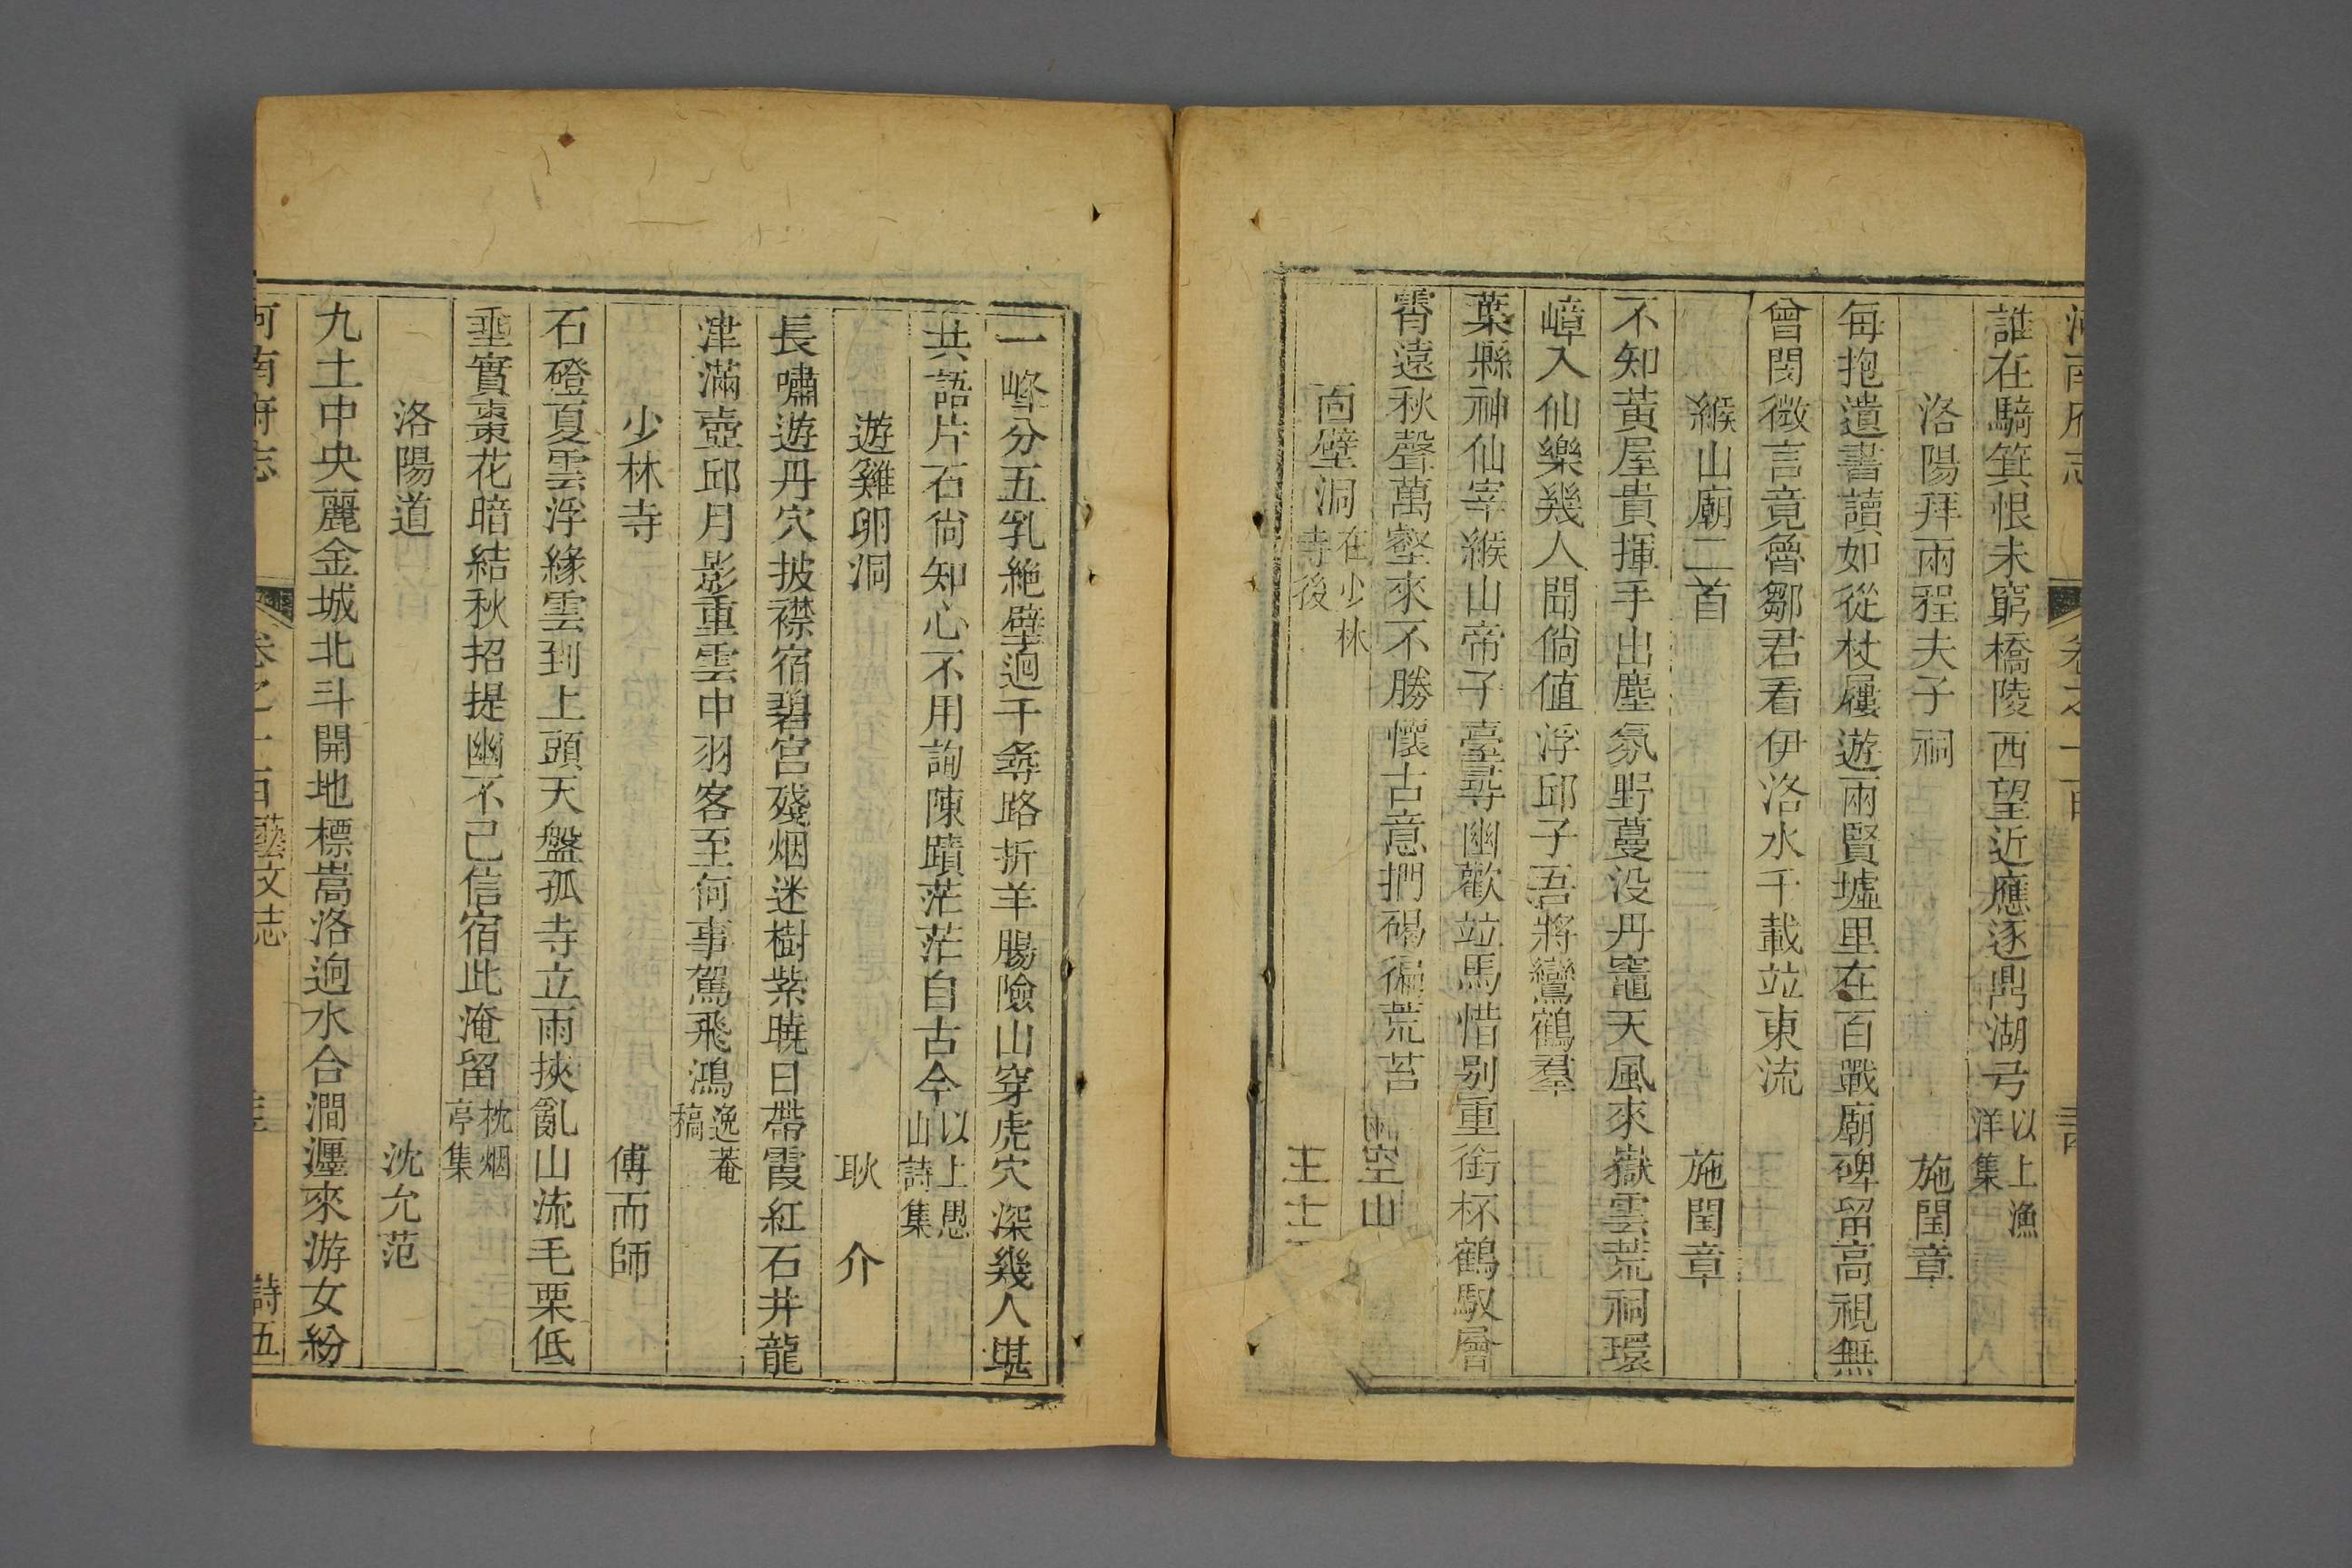 河南府志 卷之一百
誰在騎箕恨未窮橋陵西望近應逐鼎湖弓以上漁洋集
洛陽拜兩程夫子祠 施閏章
每抱遺書讀如從杖屨遊兩賢墟里在百戰廟碑留高視無
曾閔微言竟魯鄒君看伊洛水千載竝東流
緱山廟二首 施閏章
不知黃屋貴揮手出塵氛野蔓没丹竈天風來嶽雲荒祠環
嶂入仙樂幾人聞倘值浮邱子吾將鸞鶴羣
葉縣神仙宰緱山帝子臺尋幽歡竝馬惜别重銜杯鶴馭層
霄遠秋聲萬壑來不勝懷古意捫碣徧荒苔
面壁洞在少林寺後 王士
一峰分五乳絶壁迴千尋路折羊腸險山穿虎穴深幾人堪
共語片石尙知心不用詢陳蹟茫茫自古今以上愚山詩集
遊雞卵洞 耿介
長嘯遊丹穴披襟宿碧宫殘烟迷樹紫曉日帶霞紅石井龍
津滿壺邱月影重雲中羽客至何事駕飛鴻逸菴稿
少林寺 傅而師
石磴夏雲浮緣雲到上頭天盤孤寺立雨挾亂山流毛栗低
垂實棗花暗結秋招提幽不已信宿此淹留枕烟亭集
洛陽道 沈允范
九土中央麗金城北斗開地標嵩洛迥水合澗瀍來游女紛
河南府志 卷之一百藝文志 詩五